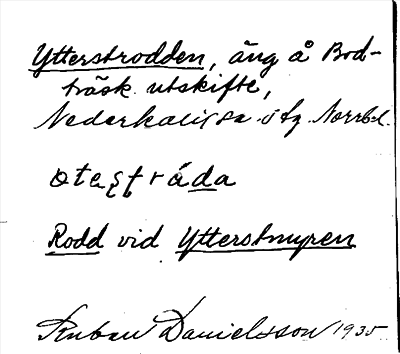 Ytterstrodden, äng å Bod-
träsk utskifte,
Nederkalix sn Norrb.l.
Rodd vid Ytterstmyren
Ruben Danielsson 1935